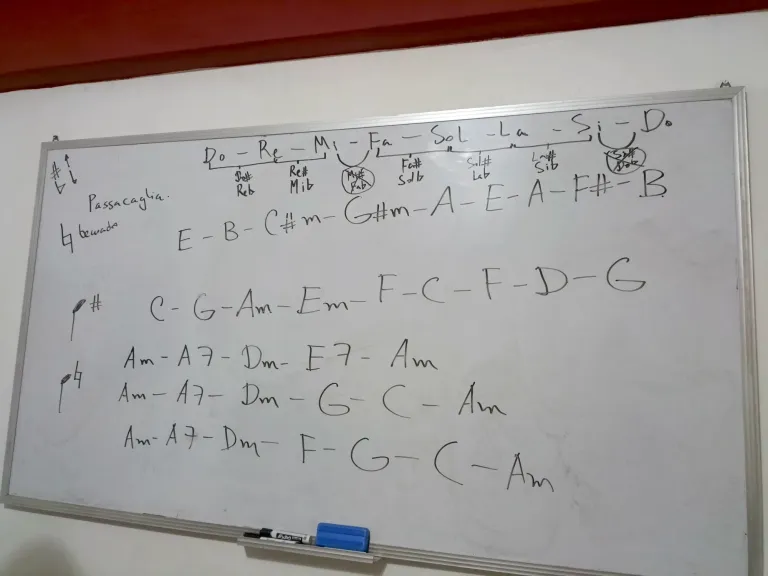 Do - Re - Mi - Fa - Sol - La - Si - Do
Do# Re# Mi# Fa# Sol# La# Si#
Reb Mib Fab Solb Lab Sib Dob
Passacaglia.
E - B - C#m - G#m - A - E - A - F# - B
#
C - G - Am - Em - F - C - F - D - G
Am - A7 - Dm - E7 - Am
♮
Am - A7 - Dm - G - C - Am
Am - A7 - Dm - F - G - C - Am